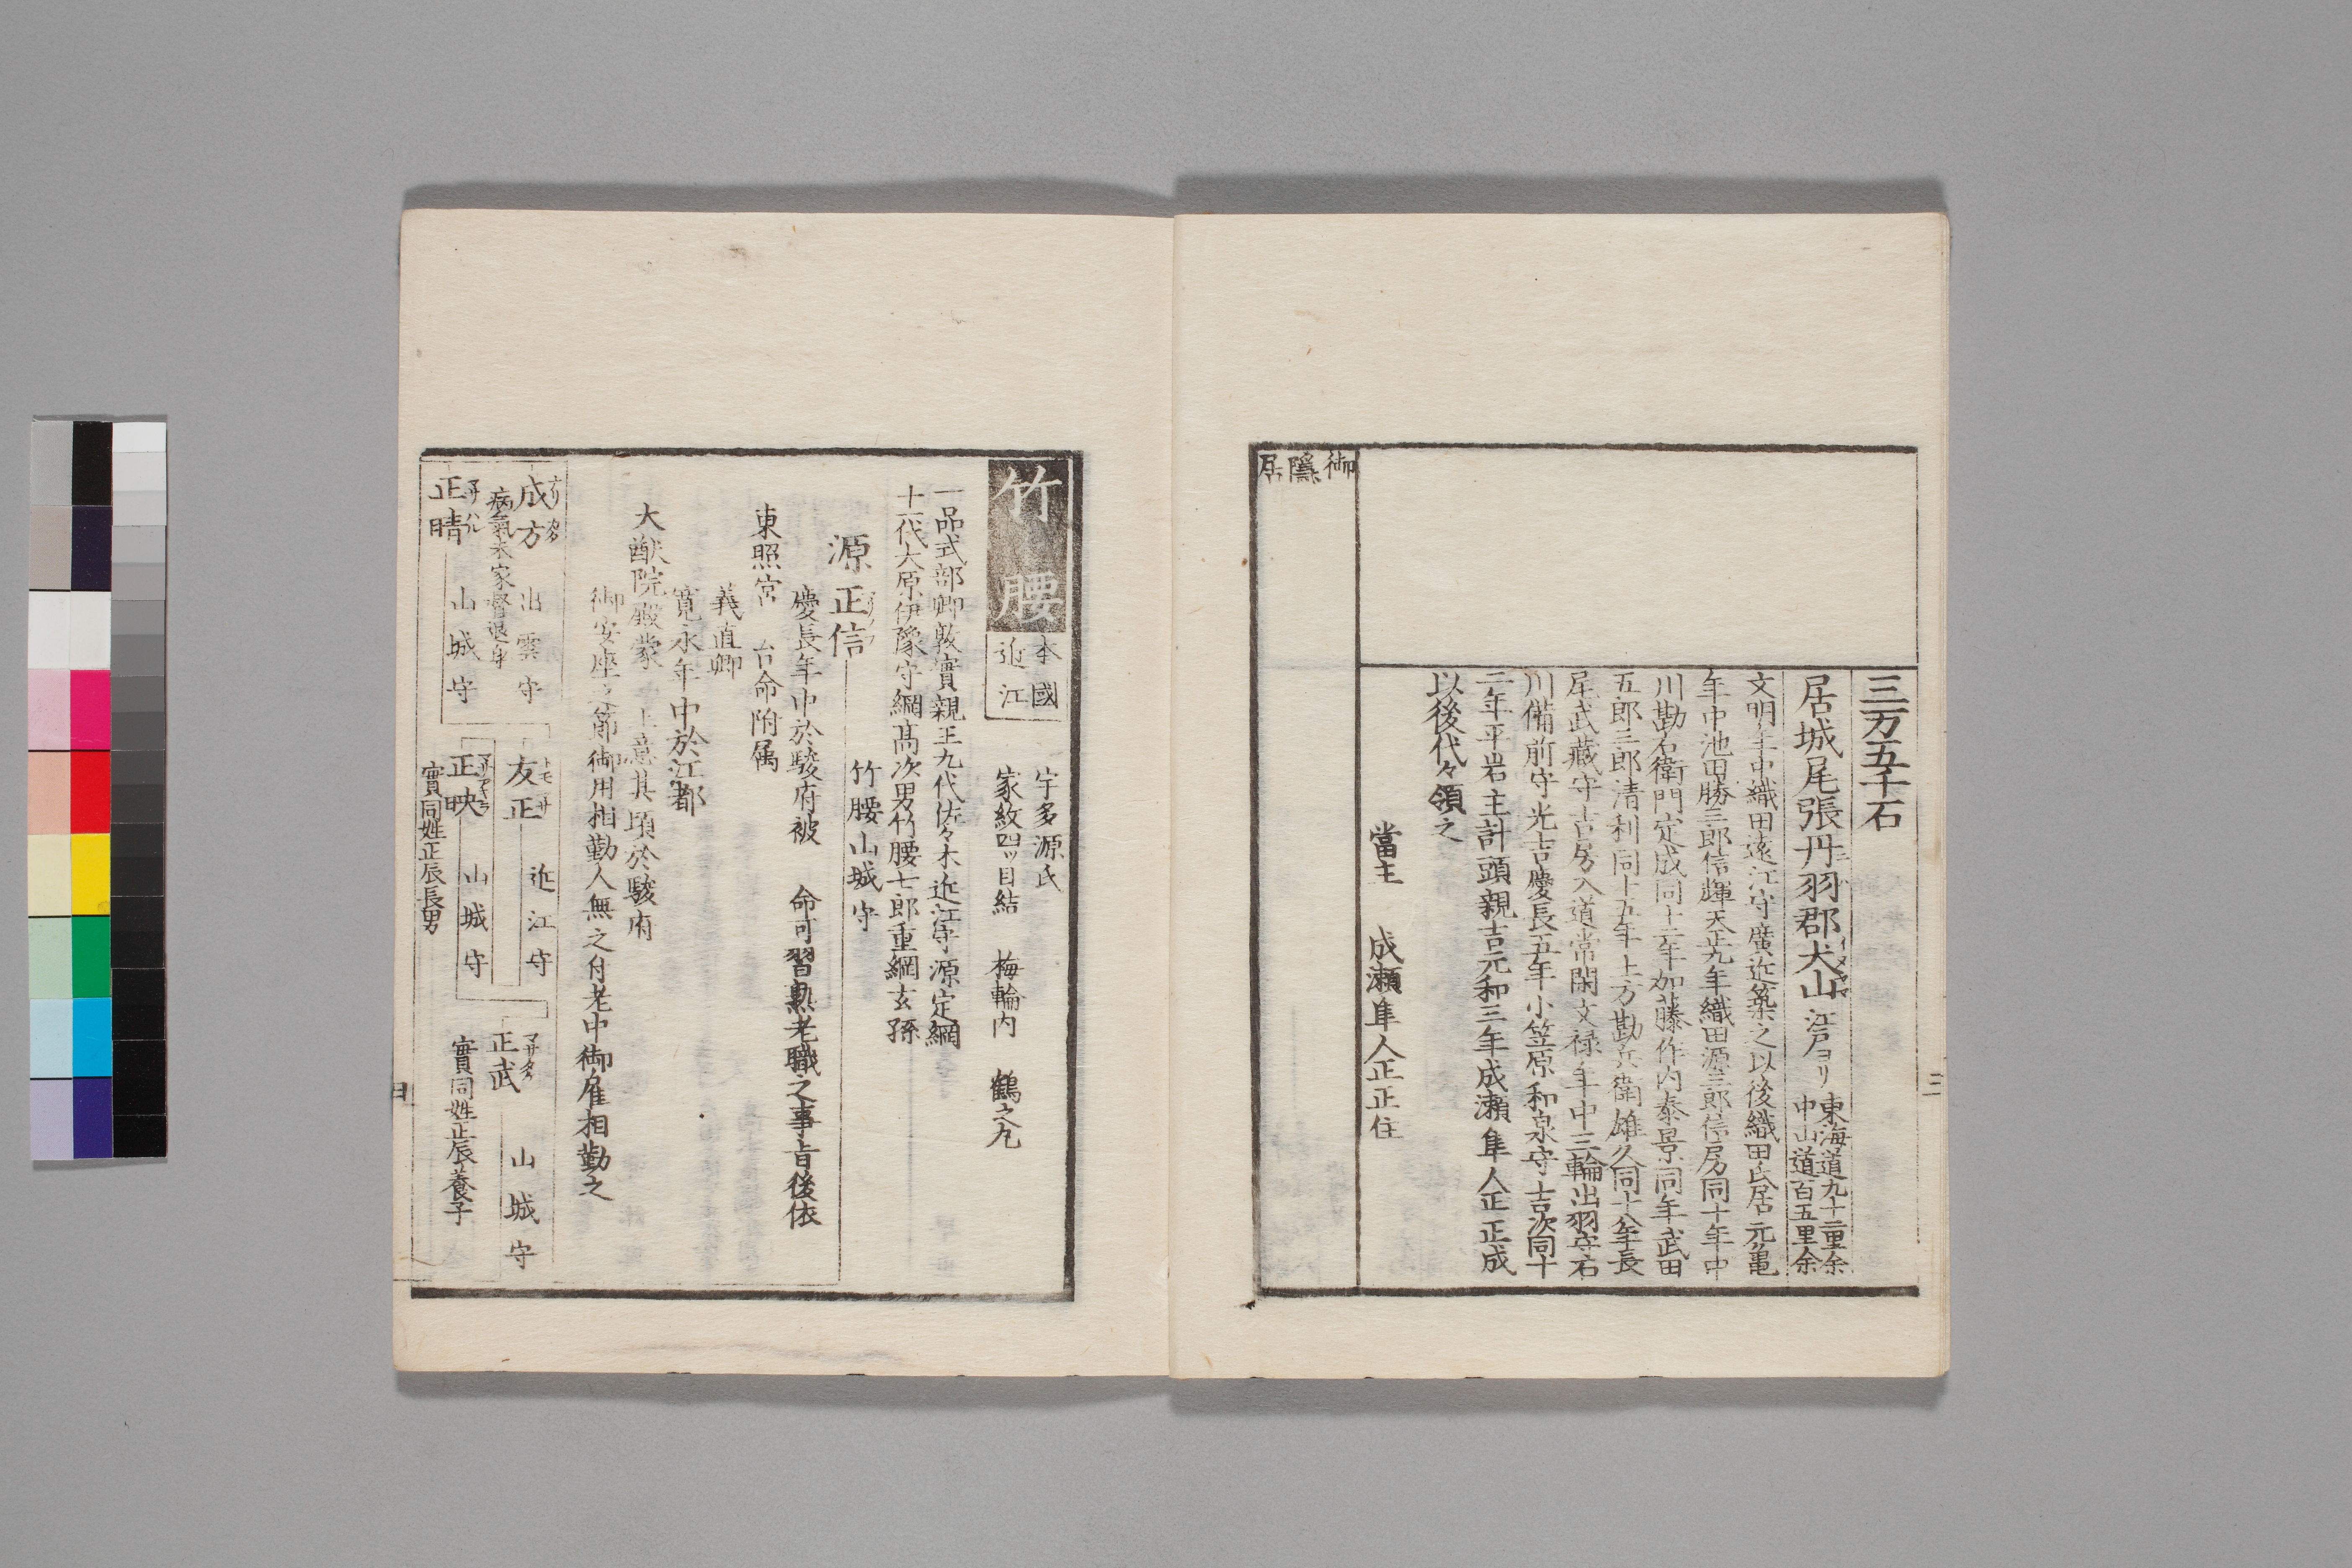 三万五千石
居城尾張丹羽郡犬山 江戸ヨリ 東海道九十二里余
中山道百五里余
イヌヤマ
文明年中織田遠江守廣近築之以後織田氏居元亀
年中池田勝三郎信輝天正九年織田源三郎信房同十年中
川勘右衛門定成同十二年加藤作内泰景同年武田
五郎三郎清利同十五年土方勘兵衛雄久同十八年長
尾武藏守吉房入道常閑文禄年中三輪出羽守石
川備前守光吉慶長五年小笠原和泉守吉次同十
二年平岩主計頭親吉元和三年成瀬隼人正正成
以後代々領之
當主 成瀬隼人正正住
御隱居
三
竹腰
本國
近江
宇多源氏
家紋四ッ目結 梅輪内 鶴之丸
一品式部卿敦實親王九代佐々木近江守源定綱
十一代大原伊豫守綱高次男竹腰七郎重綱玄孫
源正信 竹腰山城守
慶長年中於駿府被 命可習熟老職之事旨後依
東照宮 台命附属
義直卿
寛永年中於江都
大猷院殿蒙 上意其頃於駿府
御安座之節御用相勤人無之付老中御雇相勤之
成方 出雲守
病氣未家督退身
正晴 山城守
友正 近江守
トモマサ
正映 山城守
マサアキラ
實同姓正辰長男
正武 山城守
マサタケ
實同姓正辰養子